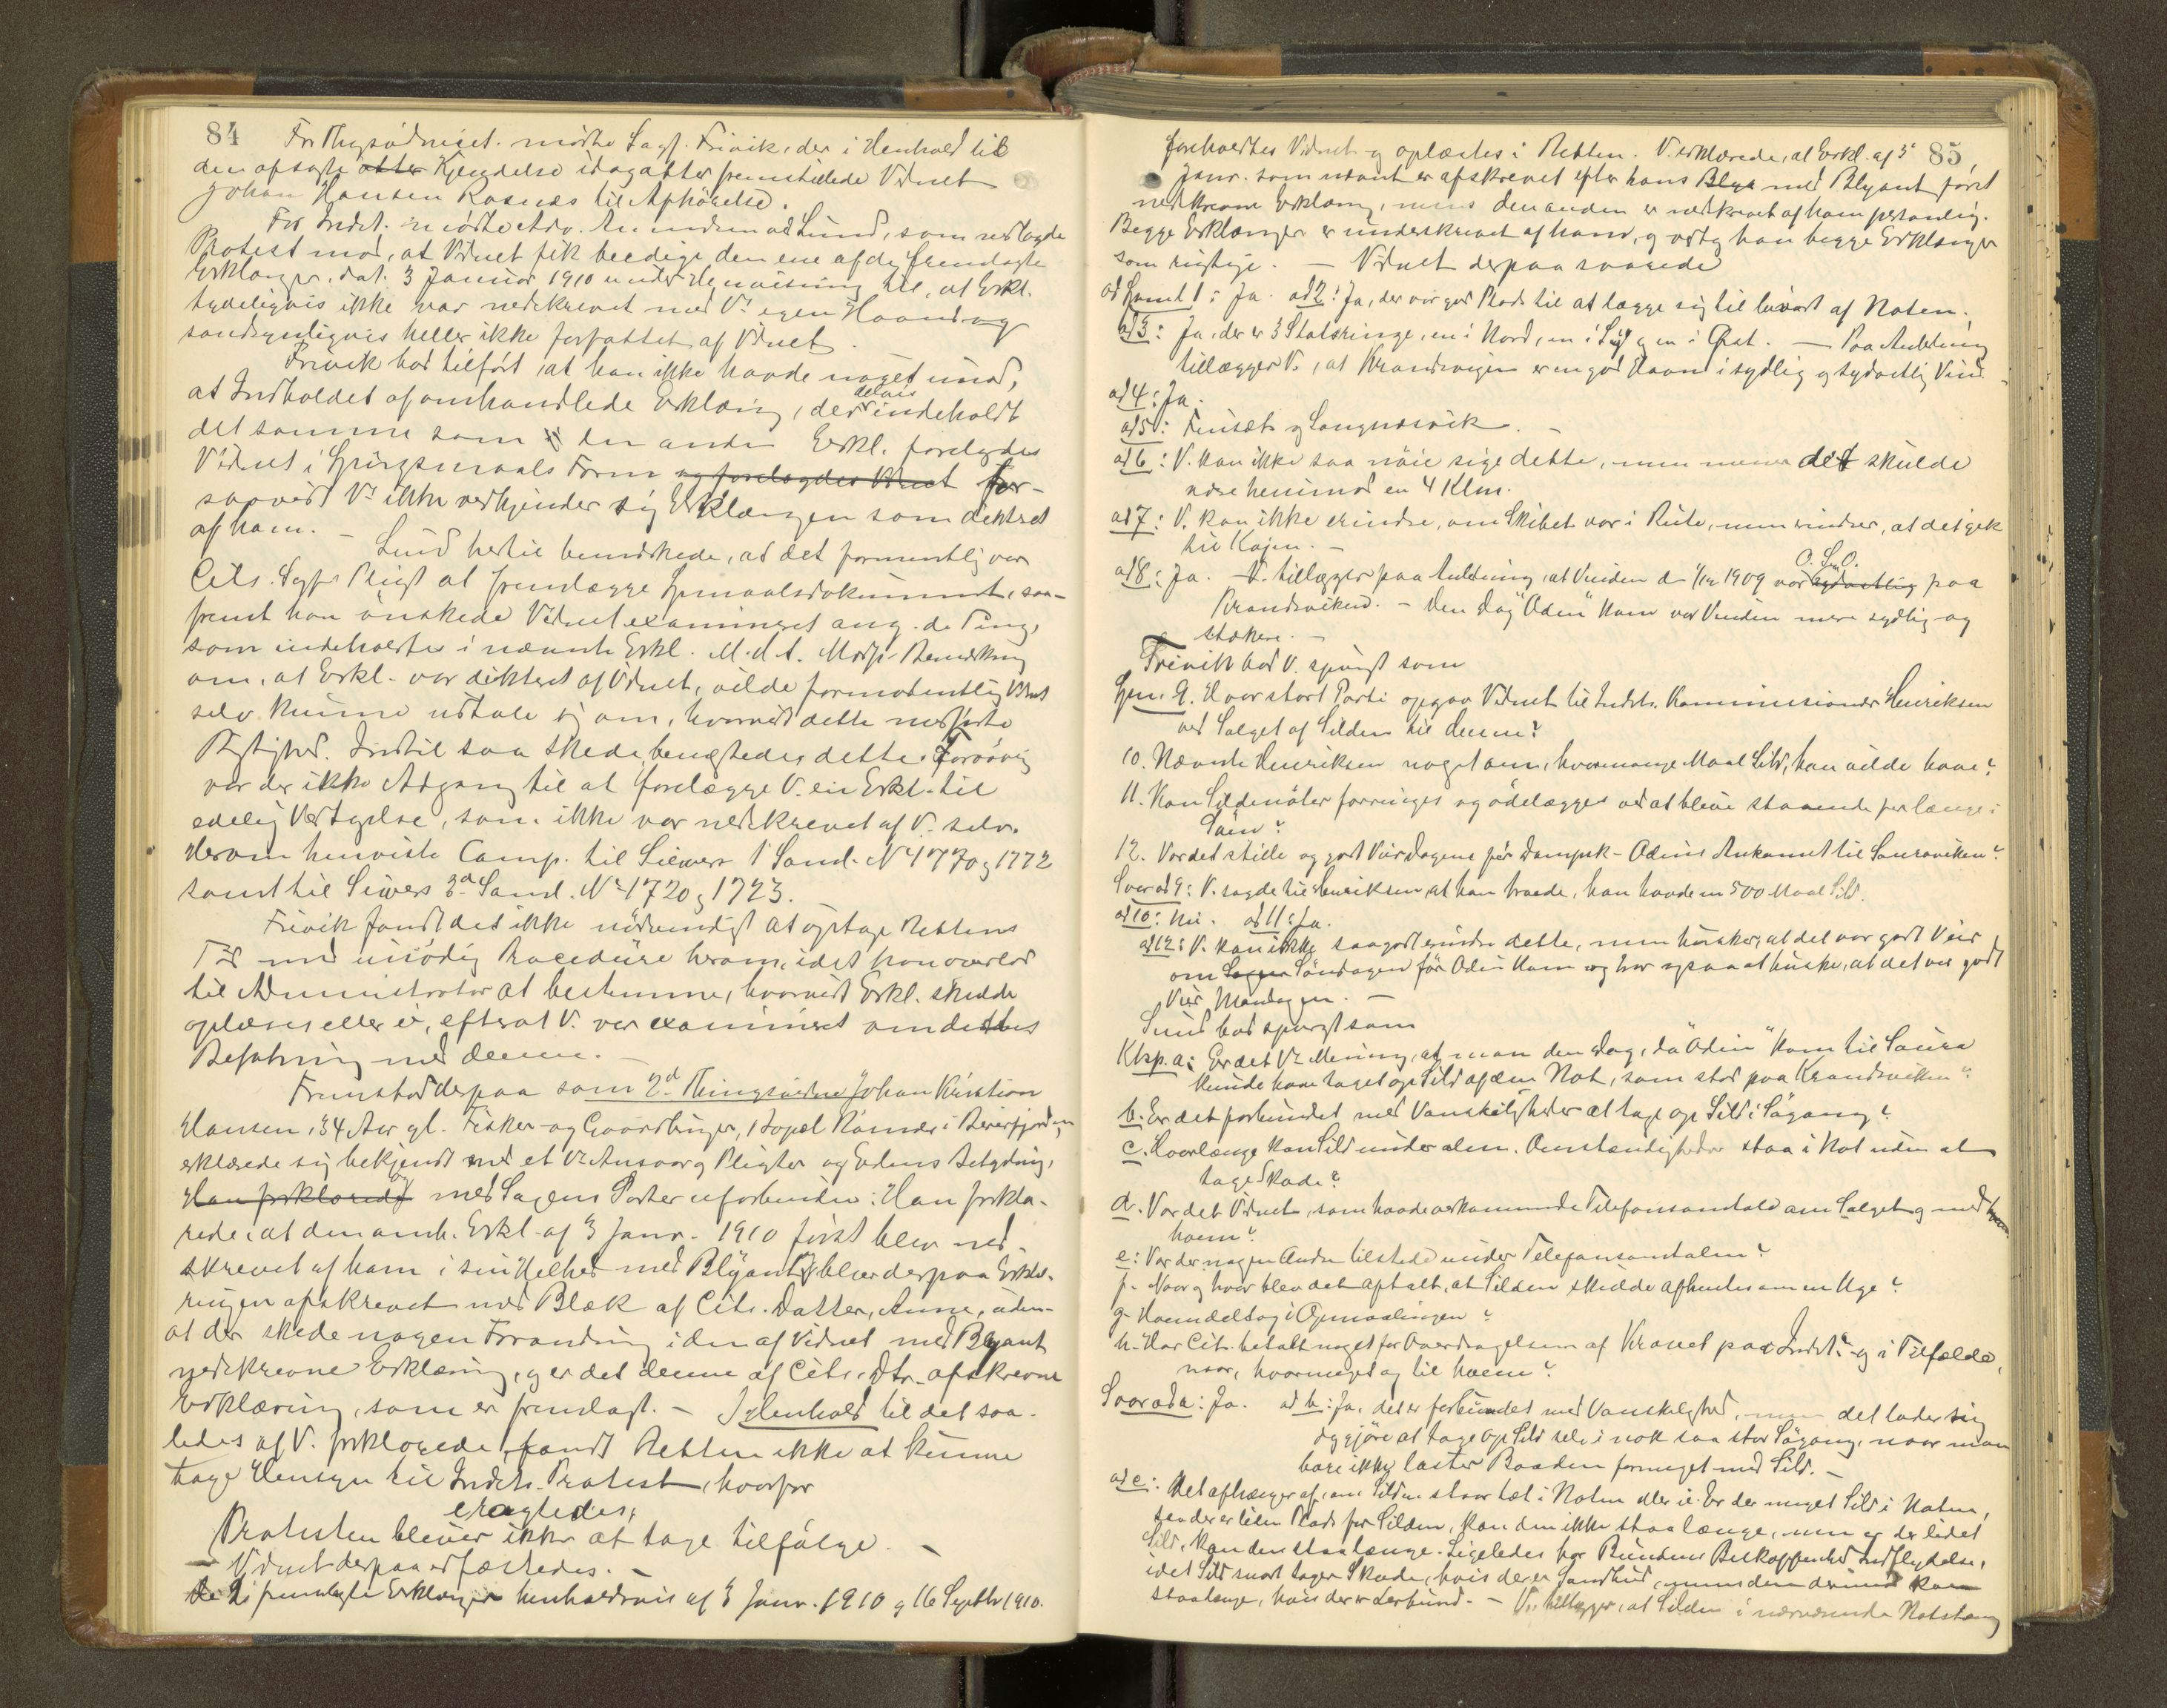 84
For Thgsvidneget. mødte Sagf. Frivik, der i Henhold til
den afsagte Kjendelse idag atter fremstillede Vidnet
Johan Hansen Rosnæs til Afhörelse.
For Indst. mødte Adv. Lund, som nedlagde
Protest mod, at Vidnet fik beedige den ene af de fremlagte
Erklæringer, dat. 3 Januar 1910 under Henvisning til, at Erkl.
tydeligvis ikke var nedskrevet med Vs egen Haand og
sandsynligvis heller ikke forfattet af Vidnet.
Frivik bad tilført, at han ikke havde noget imod,
at Indholdet af omhandlede Erklæring, der delvis indeholdt
det samme som den anden Erkl. forelagdes
Vidnet i Spörgsmaals Form og forelagdes Vidnet for-
saavidt Vt ikke vedkjender sig Erklæringen som dikteret
af ham. - Lund hertil bemærkede, at det formentlig var
Cits. Sagfs Pligt at fremlægge Spmaalsdokument, saa-
fremt han ønskede Vidnet examineret ang. de Ting,
som indeholdtes i nævnte Erkl. M.d.A. Modp. Bemærkning
om, at Erkl. var dikteret af Vidnet, vilde formodentlig Vidnet
selv kunne udtale sig om, hvorvidt dette medførte
Rigtighed. Indtil saa skede, benegtedes dette. Forøvrig
var der ikke Adgang til at forelægge V. en Erkl. til
edelig Vedtagelse, som ikke var nedskrevet af V. selv.
Herom henviste Comp. til Siewers 1 Saml. No 1770 og 1772
samt til Siewers 3d Saml. No 1720 og 1723.
Frivik fandt det ikke nødvendigt at optage Rettens
Tid med unødig Procedure herom, idet han overlod
til Administrator at bestemme, hvorvidt Erkl. skulde
oplæses eller ei, efterat V. var examineret om dettes
Befatning med denne.
Fremstod derpaa som 2d Thingsvidne Johan Kristian
Hansen, 34 Aar gl. Fisker og Gaardbruger, i Beierfjorden,
erklærede sig bekjendt med et Vs Ansvar og Pligter og Edens Betydning,
Han forklarede med Sagens Parter uforbunden: Han forkla-
rede, at den omh. Erkl. af 3 Janr. 1910 først blev ned-
skrevet af ham i sin Helhed med Blyant, blev derpaa Erklæ-
ringen afskrevet med Blæk af Cits. Datter, Anne, uden-
at der skede nogen Forandring i den af Vidnet med Blyant
nedskrevne Erklæring, og er det denne af Cits. Dtr. afskrevne
Erklæring, som er fremlagt. - I Henhold til det saa-
ledes af V. forklarede, fandt Retten ikke at kunne
tage Hensyn til Indst. Protest, hvorfor
eragtedes:
Protesten bliver ikke at tage tilfølge. -
- Vidnet derpaa edfæstedes. -
De 2 fremlagte Erklæringer henholdsvis af 3 Janr. 1910 og 16 Septbr 1910.
85
foreholdtes Vidnet og oplæstes i Retten. V. erklærede, at Erkl. af 3
Janr. som nævnt er afskrevet efter hans med Blyant først
nedskrevne Erklæring, mens den anden er nedskrevet af ham personlig.
Begge Erklæringer er underskrevet af ham, og vedtog han begge Erklæringer
som rigtige. - Vidnet derpaa svarede
ad Spml 1: Ja. ad 2: Ja, der var god Plads til at lægge sig til luvart af Noten.
ad 3: Ja, der er 3 Statsringe, en i Nord, en i Syd og en i Øst. - Paa Anledning
tillægger V., at Krandsvigen er en god Havn i sydlig og sydostlig Vind.
ad 4: Ja.
ad 5: Finsæt og Langnesvik. -
ad 6: V. kan ikke saa nöie sige dette, men mener det skulde
være henimod en 4 Klm.
ad 7: V. kan ikke erindre, om Skibet var i Rute, men erindrer, at det gik
til Kajen. -
ad 8: Ja. V. tillægger paa Anledning, at Vinden d. 1/12 1909 var sydostlig O.S.O. paa
Krandsviken. - Den Dag "Odin" kom var Vinden mere sydlig og
stærkere. -
Frivik bad V. spurgt som
Spm. 9. Hvor stort Parti opgav Vidnet til Indst. Kommissionær Henriksen
ved Salget af Silden til denne?
10. Nævnte Henriksen noget om, hvormange Maal Sild, han vilde have?
11. Kan Sildenöter forringes og ödelægges ved at blive staaende for længe i
Söen?
12. Var det stille og godt Veir Dagene för Dampsk. Odins Ankomst til Sauraviken?
Svar ad 9: V. sagde til Henriksen, at han troede, han havde en 500 Maal Sild.
ad 10: Nei. ad 11: Ja.
ad 12: V. kan ikke saa godt erindre dette, men husker, at det var godt Veir
om Söndagen för Odin kom og tror ogsaa at huske, at det var godt
Veir Mandagen. -
Lund bad spurgt som
Ktsp. a: Er det Vs Mening, at man den Dag, da "Odin" kom til Saura
kunde have taget op Sild af den Not, som stod paa Krandsviken?
b. Er det forbundet med Vanskeligheder at tage op Sild i Sögang?
c. Hvorlænge kan Sild under alm. Omstændigheder staa i Not uden at
tage Skade?
d. Var det Vidnet, som havde vedkommende Telefonsamtale om Salget og med
hvem?
e: Var der nogen Andre tilstede under Telefonsamtalen?
f. Naar og hvor blev det aftalt, at Silden skulde afhentes om en Uge?
g. Hvem deltog i Opmaalingen?
h. Har Cit. betalt noget for Overdragelsen af Kravet paa Indst. og i Tilfælde,
naar, hvormeget og til hvem?
Svar ad a: Ja. ad b: Ja, det er forbundet med Vanskelighed, men det lader sig
dog gjöre at tage op Sild selv i nok saa stor Sögang, naar man
bare ikke laster Baaden formeget med Sild. -
ad c: Det afhænger af, om Silden staar tæt i Noten eller ei. Er der meget Sild i Noten,
saa der er liden Plads for Silden, kan den ikke staa længe, men er der lidet
Sild, kan den staa længe. Ligeledes har Bundens Beskaffenhed Indflydelse,
idet Sild snart tager Skade, hvis der er Sandbund, mens den derimod kan
staa længe, hvis der er Lerbund. - V. tillægger, at Silden i nærværende Notstæng